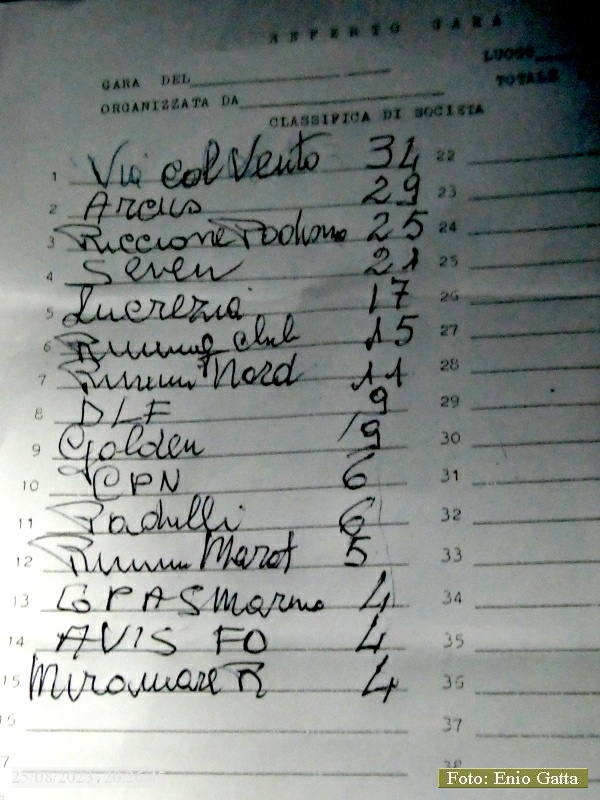 REFERTO GARA
GARA DEL
LUOGO
ORGANIZZATA DA
TOTALE
CLASSIFICA DI SOCIETA
1 Via col Vento 34
2 Arcus 29
3 Riccione Podismo 25
4 Seven 21
5 Lucrezia 17
6 Running club 15
7 Rimini Nord 11
8 DLF 9
9 Golden 19
10 CPN 6
11 6
12 Rimini Marat 5
13 GPA S Marino 4
14 AVIS FO 4
15 Miramare R 4
16
17
22
23
24
25
26
27
28
29
30
31
32
33
34
35
36
37
38
25/08/2023, 20:26
Foto: Enio Gatta